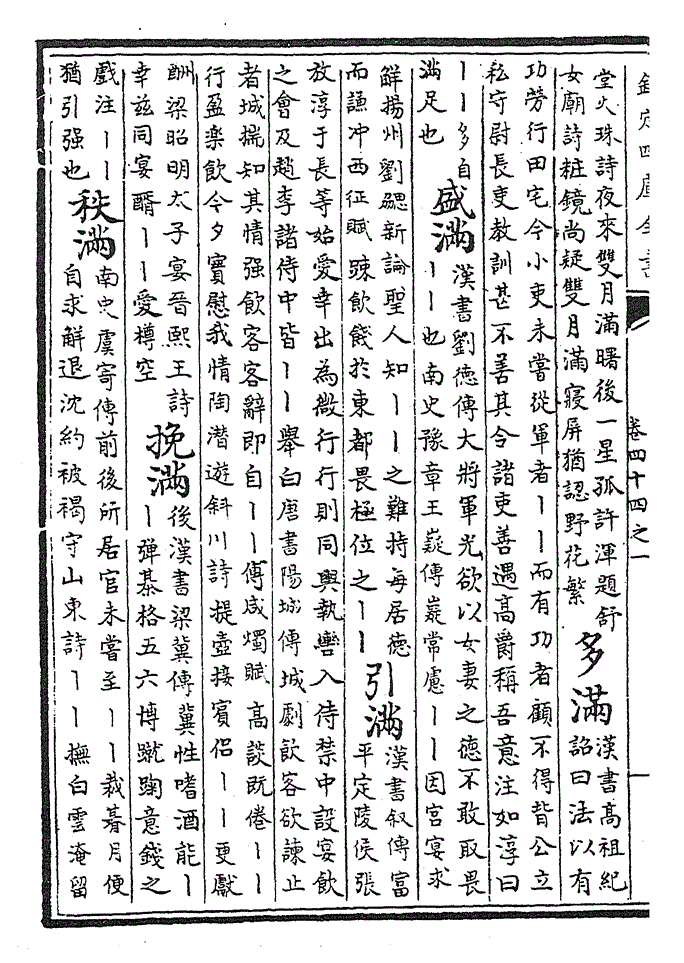 欽定四庫全書 卷四十四之一 一
堂火珠詩夜來雙月滿曙後一星孤許渾題舒
女廟詩粧鏡尚疑雙月滿寢屏猶認野花繁
多滿
漢書高祖紀
詔曰法以有
功勞行田宅今小吏未嘗從軍者丨丨而有功者顧不得背公立
私守尉長吏教訓甚不善其令諸吏善遇高爵稱吾意注如淳曰
丨丨多自
滿足也
盛滿
漢書劉德傳大將軍光欲以女妻之德不敢取畏
丨丨也南史豫章王嶷傳嶷常慮丨丨因宮宴求
解揚州劉勰新論聖人知丨丨之難持每居德
而謙冲西征賦踈飲餞於東都畏極位之丨丨
引滿
漢書敘傳富
平定陵侯張
放淳于長等始愛幸出為微行行則同輿執轡入侍禁中設宴飲
之會及趙李諸侍中皆丨丨舉白唐書陽城傳城劇飲客欲諫止
者城揣知其情强飲客客辭即自丨丨傅咸燭賦高談既倦丨丨
行盈樂飲今夕實慰我情陶潛遊斜川詩提壺接賓侶丨丨更獻
酬梁昭明太子宴晉熙王詩
幸兹同宴醑丨丨愛樽空
挽滿
後漢書梁冀傳冀性嗜酒能丨
丨彈棊格五六博蹴踘意錢之
戲注丨丨
猶引强也
秩滿
南史虞寄傳前後所居官未嘗至丨丨裁朞月便
自求解退沈約被褐守山東詩丨丨撫白雲淹留